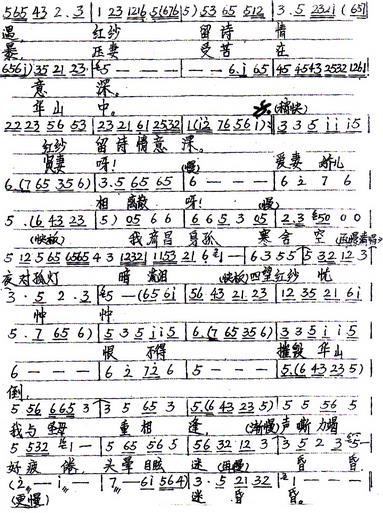 5 6 5 4 3 2 . 3 | 1 2 3 1 2 1 6 (5 6 7 6 | 5) 5 3 6 5 5 1 2 | 3 . 5 2 3 2 i (6 5 |
遇 红纱 留诗 情
正妻 受苦 在
6 5 6 i) 3 5 2 1 2 3 | 5 - - - | - - - 6 . i 6 5 | 4 5 4 5 4 3 2 5 3 2 1 2 6 1 |
意 深。
华山 中。
(稍快)
2 2 2 3 5 6 5 3 | 2 3 2 1 6 1 2 5 3 2 | 1 (i 2 7 6 5 6 i) | 3 3 5 i i i 5
红纱 留诗情意 深。
贤妻 呀! (慢) 爱妻 娇儿
6 (7 6 5 3 5 6) | 3 . 5 6 5 6 5 | 6 - - - | 6 2 7 6
相 离散 呀! (慢)
5 . (6 4 3 2 3 | 5) 0 5 6 6 | 6 6 5 3 0 5 | 2 . 3 5 0 0 0
(快板) 我 身孤 寒舍 空
5 1 2 5 6 5 6 5 6 5 4 3 | 1 2 3 2 1 1 5 3 2 1 6 2 - | 6 3 5 5 | 5 3 2 1 2 3
夜对孤灯 暗 流泪 (快板)四望红纱 忧
3 . 5 2 . 3 | 5 - (6 5 6 i | 5 6 4 3 2 1 2 3 | 1 2 3 5 2 1 6 i
忡 忡
5 . 7 6 5 6) | 5 3 5 i i 5 | 6 . (7 6 5 3 5 6) | 3 3 5 i i 5
恨 不得 摧毁 华山
6 - - - | 6 2 7 2 6 | 5 - - - | 5 . (6 4 3 2 3 5)
倒,
5 5 6 6 6 5 3 | 3 5 6 5 3 | 5 . (6 4 3 2 3 5) | 5 5 5 6
我与 圣母 重相 逢, (渐慢)声嘶力竭
5 5 3 2 1 - | 5 6 5 5 6 5 | 5 6 3 2 1 2 3 | 3 5 2 3 5 -
好疲 倦, 头晕目眩 迷 (再慢) 昏 昏
(2 - i - | 7 - 6 i 5 6 4) | 3 . 5 2 1 3 2 | 1 - - -
(更慢) 迷 昏 昏。